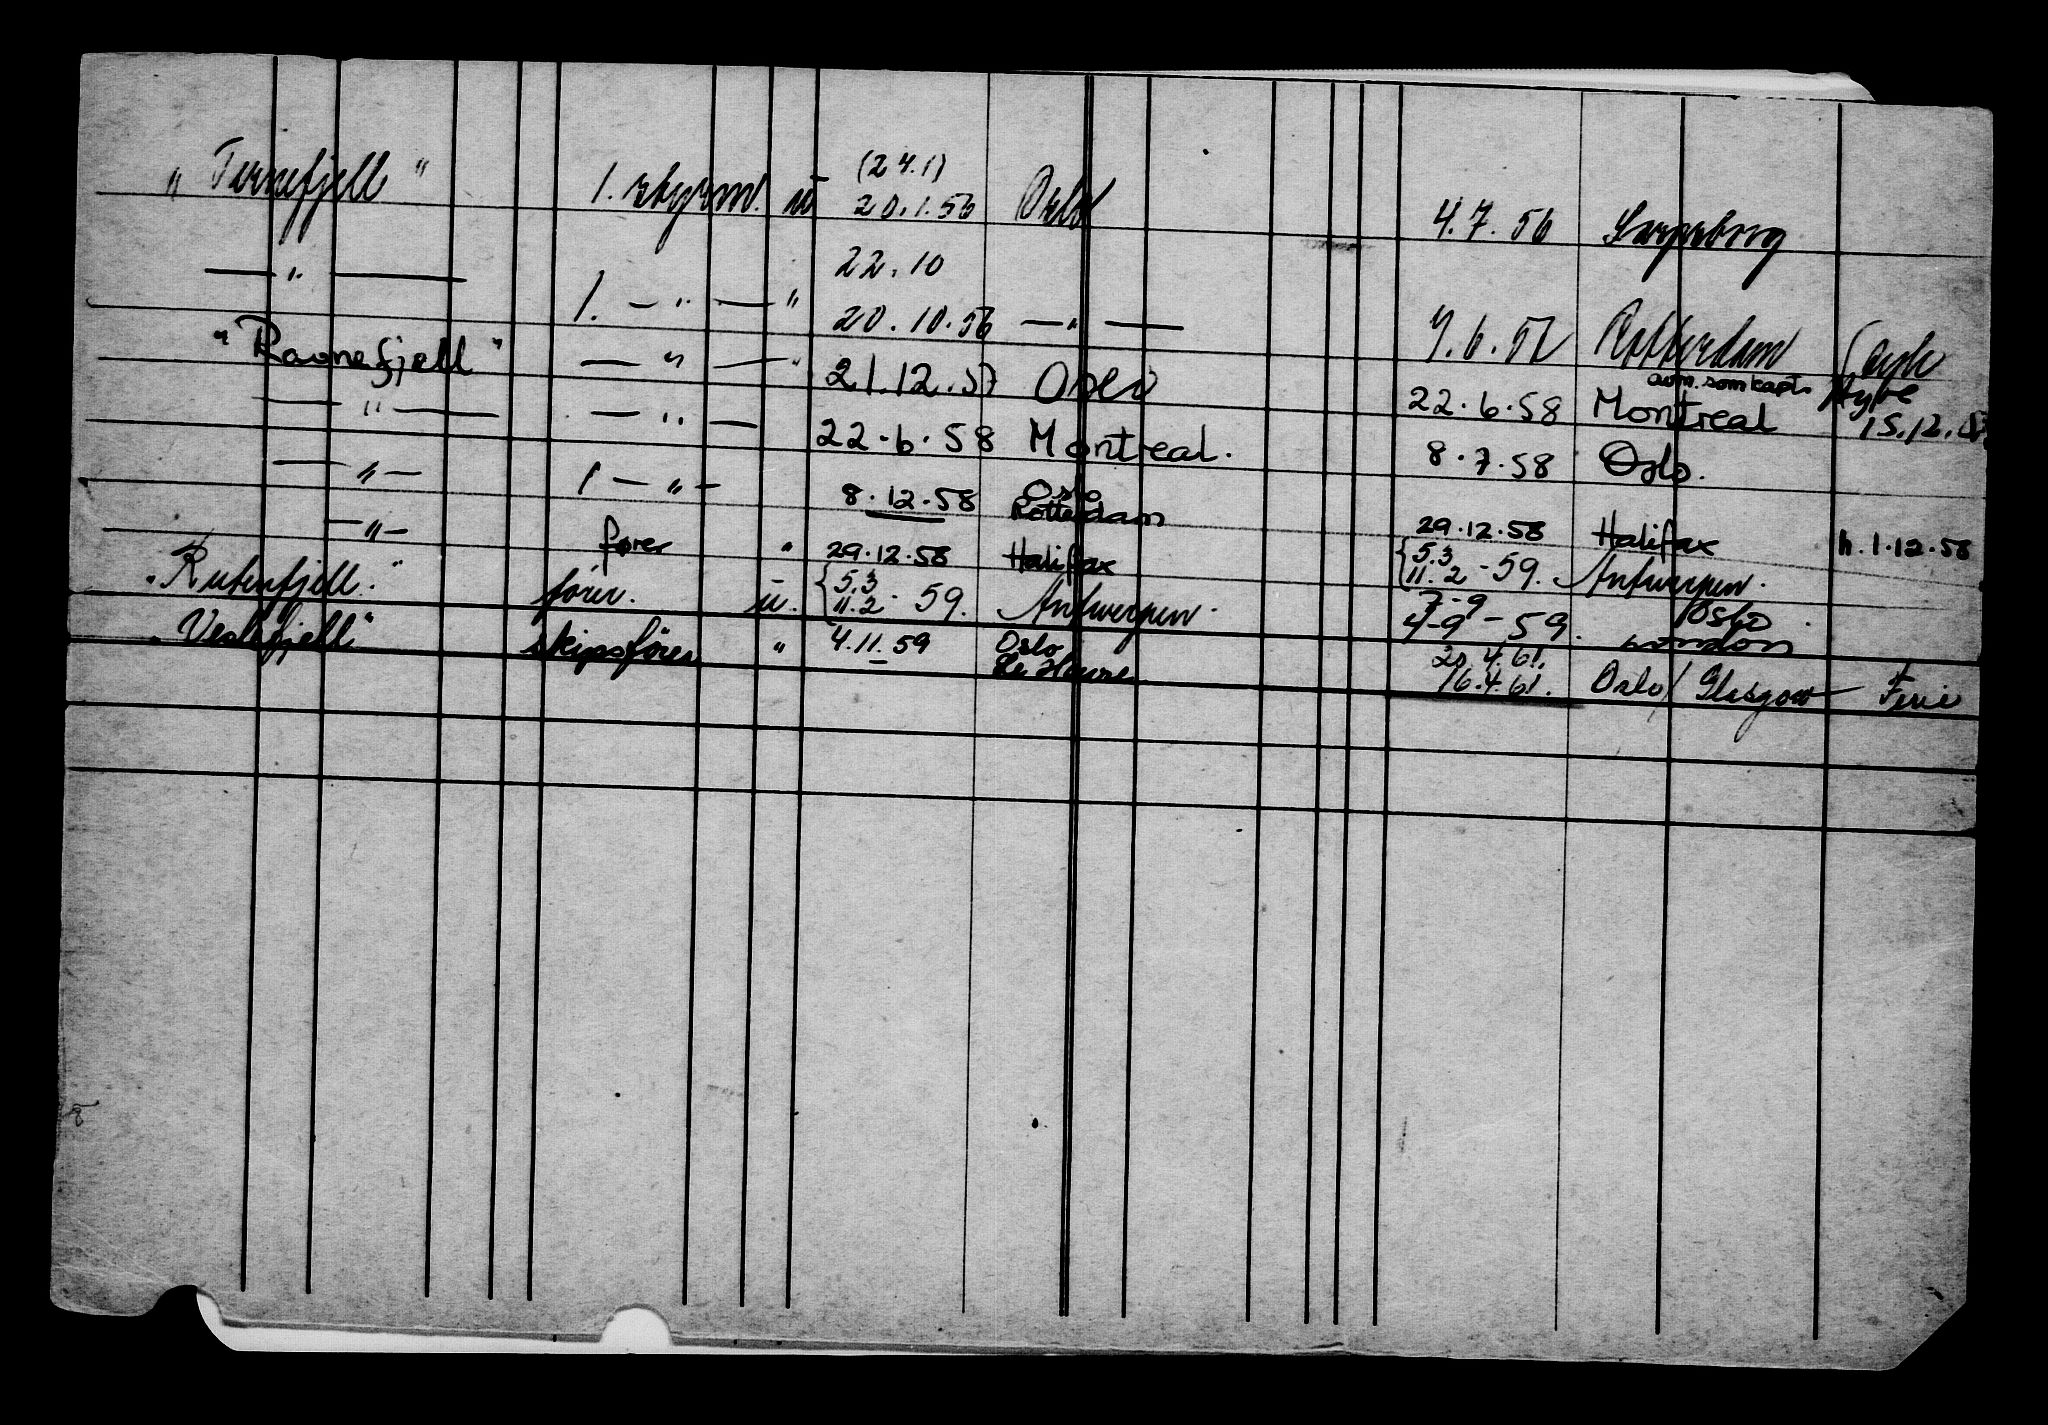 (24.1)
"Turnefjell" 1. styrm. u 20.1.56 Oslo 4.7.56 Sarpsborg
22.10
— " — 1. — " — " 20.10.56 — " — 7.6.57 Rotterdam
"Ravnefjell" — " — " 21.12.57 Oslo 22.6.58 Montreal avm. som kapt. 15.12.
— " — — " — 22.6.58 Montreal. 8.7.58 Oslo.
— " — 1 — " — 8.12.58 Oslo Rotterdam 29.12.58 Halifax h. 1.12.58
— " — fører " 29.12.58 Halifax { 5.3 11.2 - 59. Antwerpen.
"Rutenfjell." fører. u. { 5.3 11.2 - 59. Antwerpen. 7-9 4-9 - 59. Oslo London
"Veslefjell" skipsfører " 4.11.59 Oslo Le Havre 20.4.61. 16.4.61. Oslo/Glasgow — Ferie